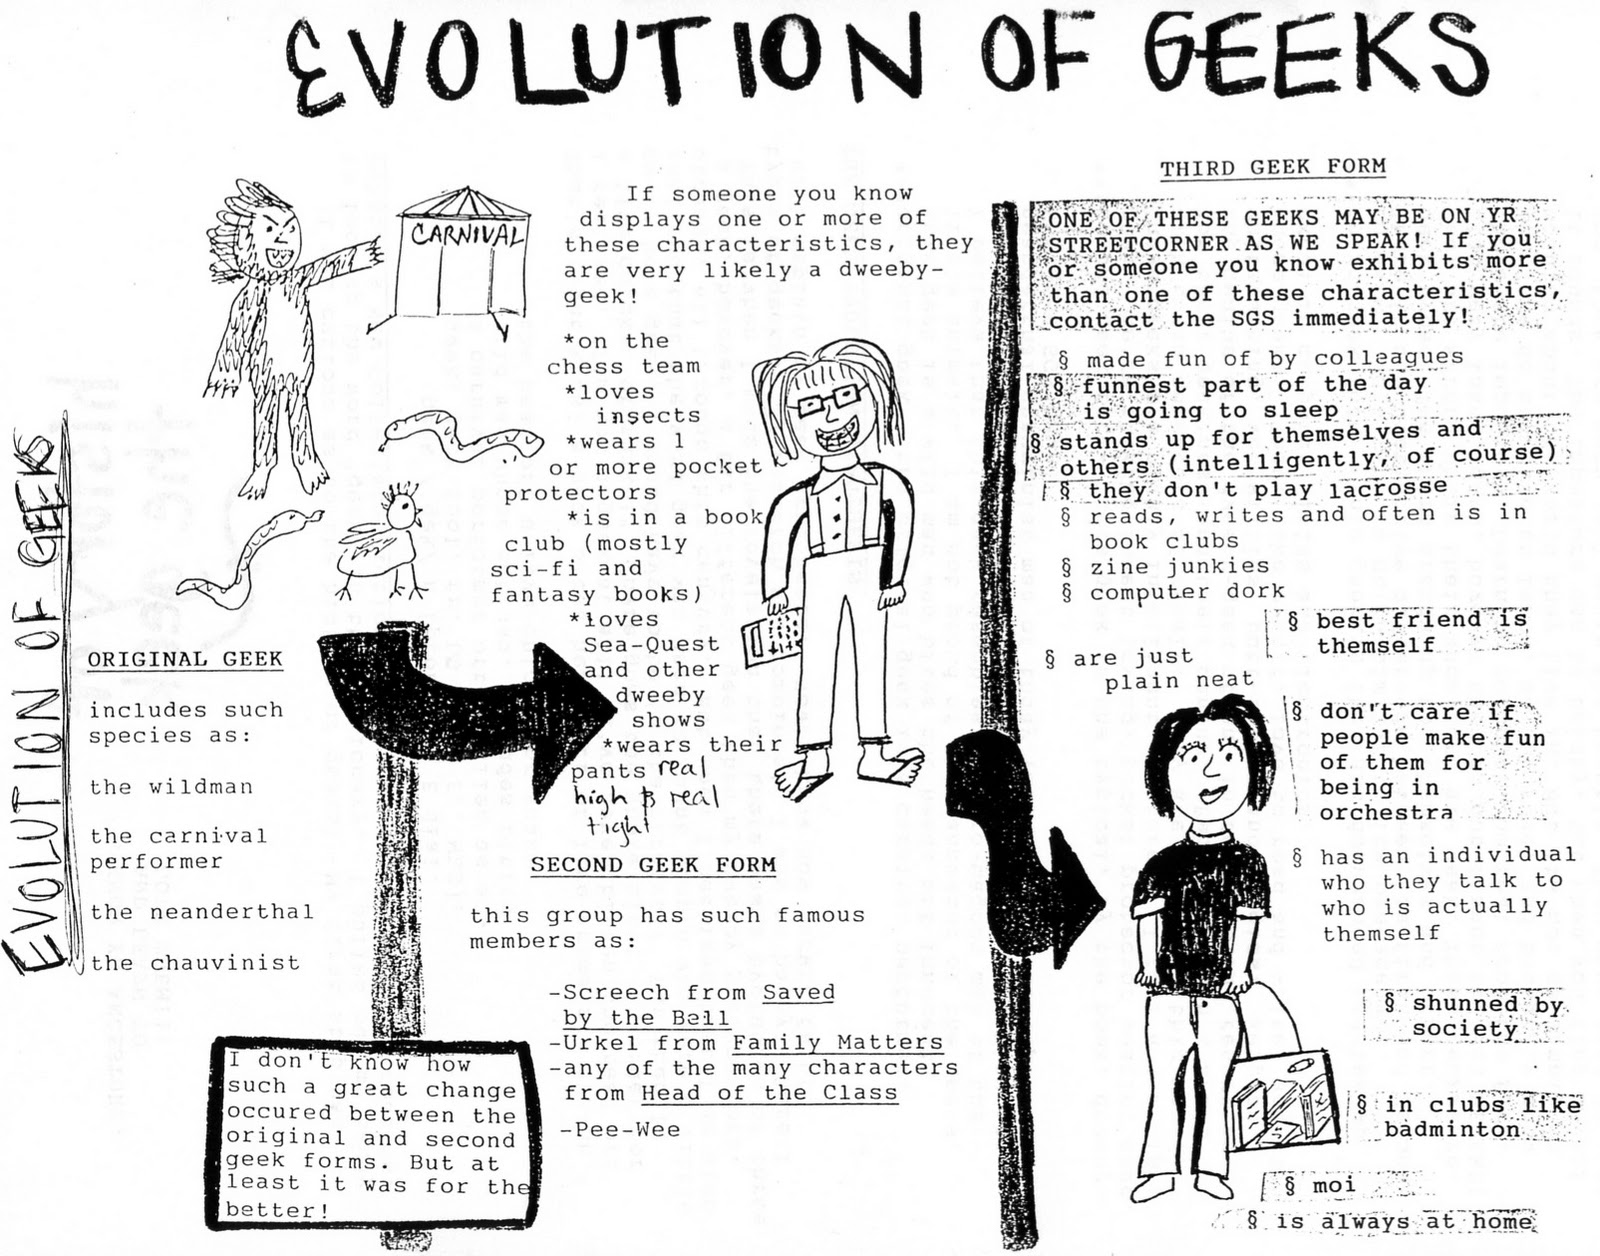 EVOLUTION OF GEEKS
EVOLUTION OF GEEKS
CARNIVAL
ORIGINAL GEEK
includes such
species as:
the wildman
the carnival
performer
the neanderthal
the chauvinist
I don't know how
such a great change
occured between the
original and second
geek forms. But at
least it was for the
better!
If someone you know
displays one or more of
these characteristics, they
are very likely a dweeby-
geek!
*on the
chess team
*loves
insects
*wears 1
or more pocket
protectors
*is in a book
club (mostly
sci-fi and
fantasy books)
*loves
Sea-Quest
and other
dweeby
shows
*wears their
pants real
high & real
tight
SECOND GEEK FORM
this group has such famous
members as:
-Screech from Saved
by the Bell
-Urkel from Family Matters
-any of the many characters
from Head of the Class
-Pee-Wee
THIRD GEEK FORM
ONE OF THESE GEEKS MAY BE ON YR
STREETCORNER AS WE SPEAK! If you
or someone you know exhibits more
than one of these characteristics,
contact the SGS immediately!
§ made fun of by colleagues
§ funnest part of the day
is going to sleep
§ stands up for themselves and
others (intelligently, of course)
§ they don't play lacrosse
§ reads, writes and often is in
book clubs
§ zine junkies
§ computer dork
§ best friend is
themself
§ are just
plain neat
§ don't care if
people make fun
of them for
being in
orchestra
§ has an individual
who they talk to
who is actually
themself
§ shunned by
society
§ in clubs like
badminton
§ moi
§ is always at home